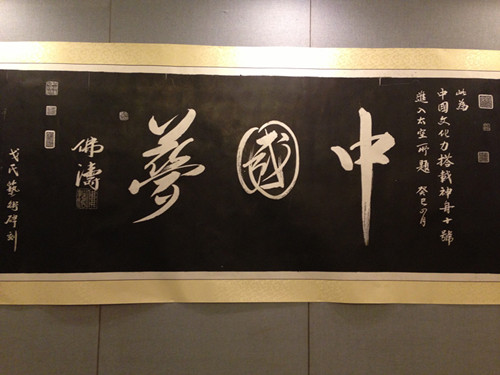 此為
中國文化力搭載神舟十號
進入太空所題 癸巳四月
中國夢
佛濤
戈氏藝術碑刻